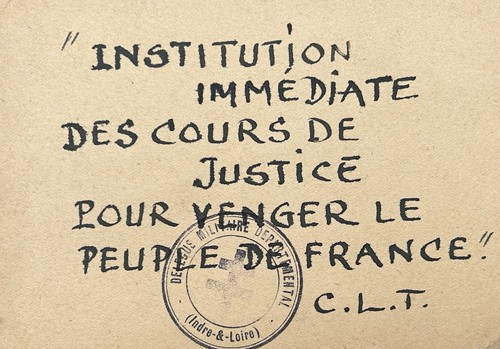 "INSTITUTION
IMMÉDIATE
DES COURS DE
JUSTICE
POUR VENGER LE
PEUPLE DE FRANCE."
C.L.T.
DELEGUE MILITAIRE DEPARTEMENTAL
(Indre-&-Loire)